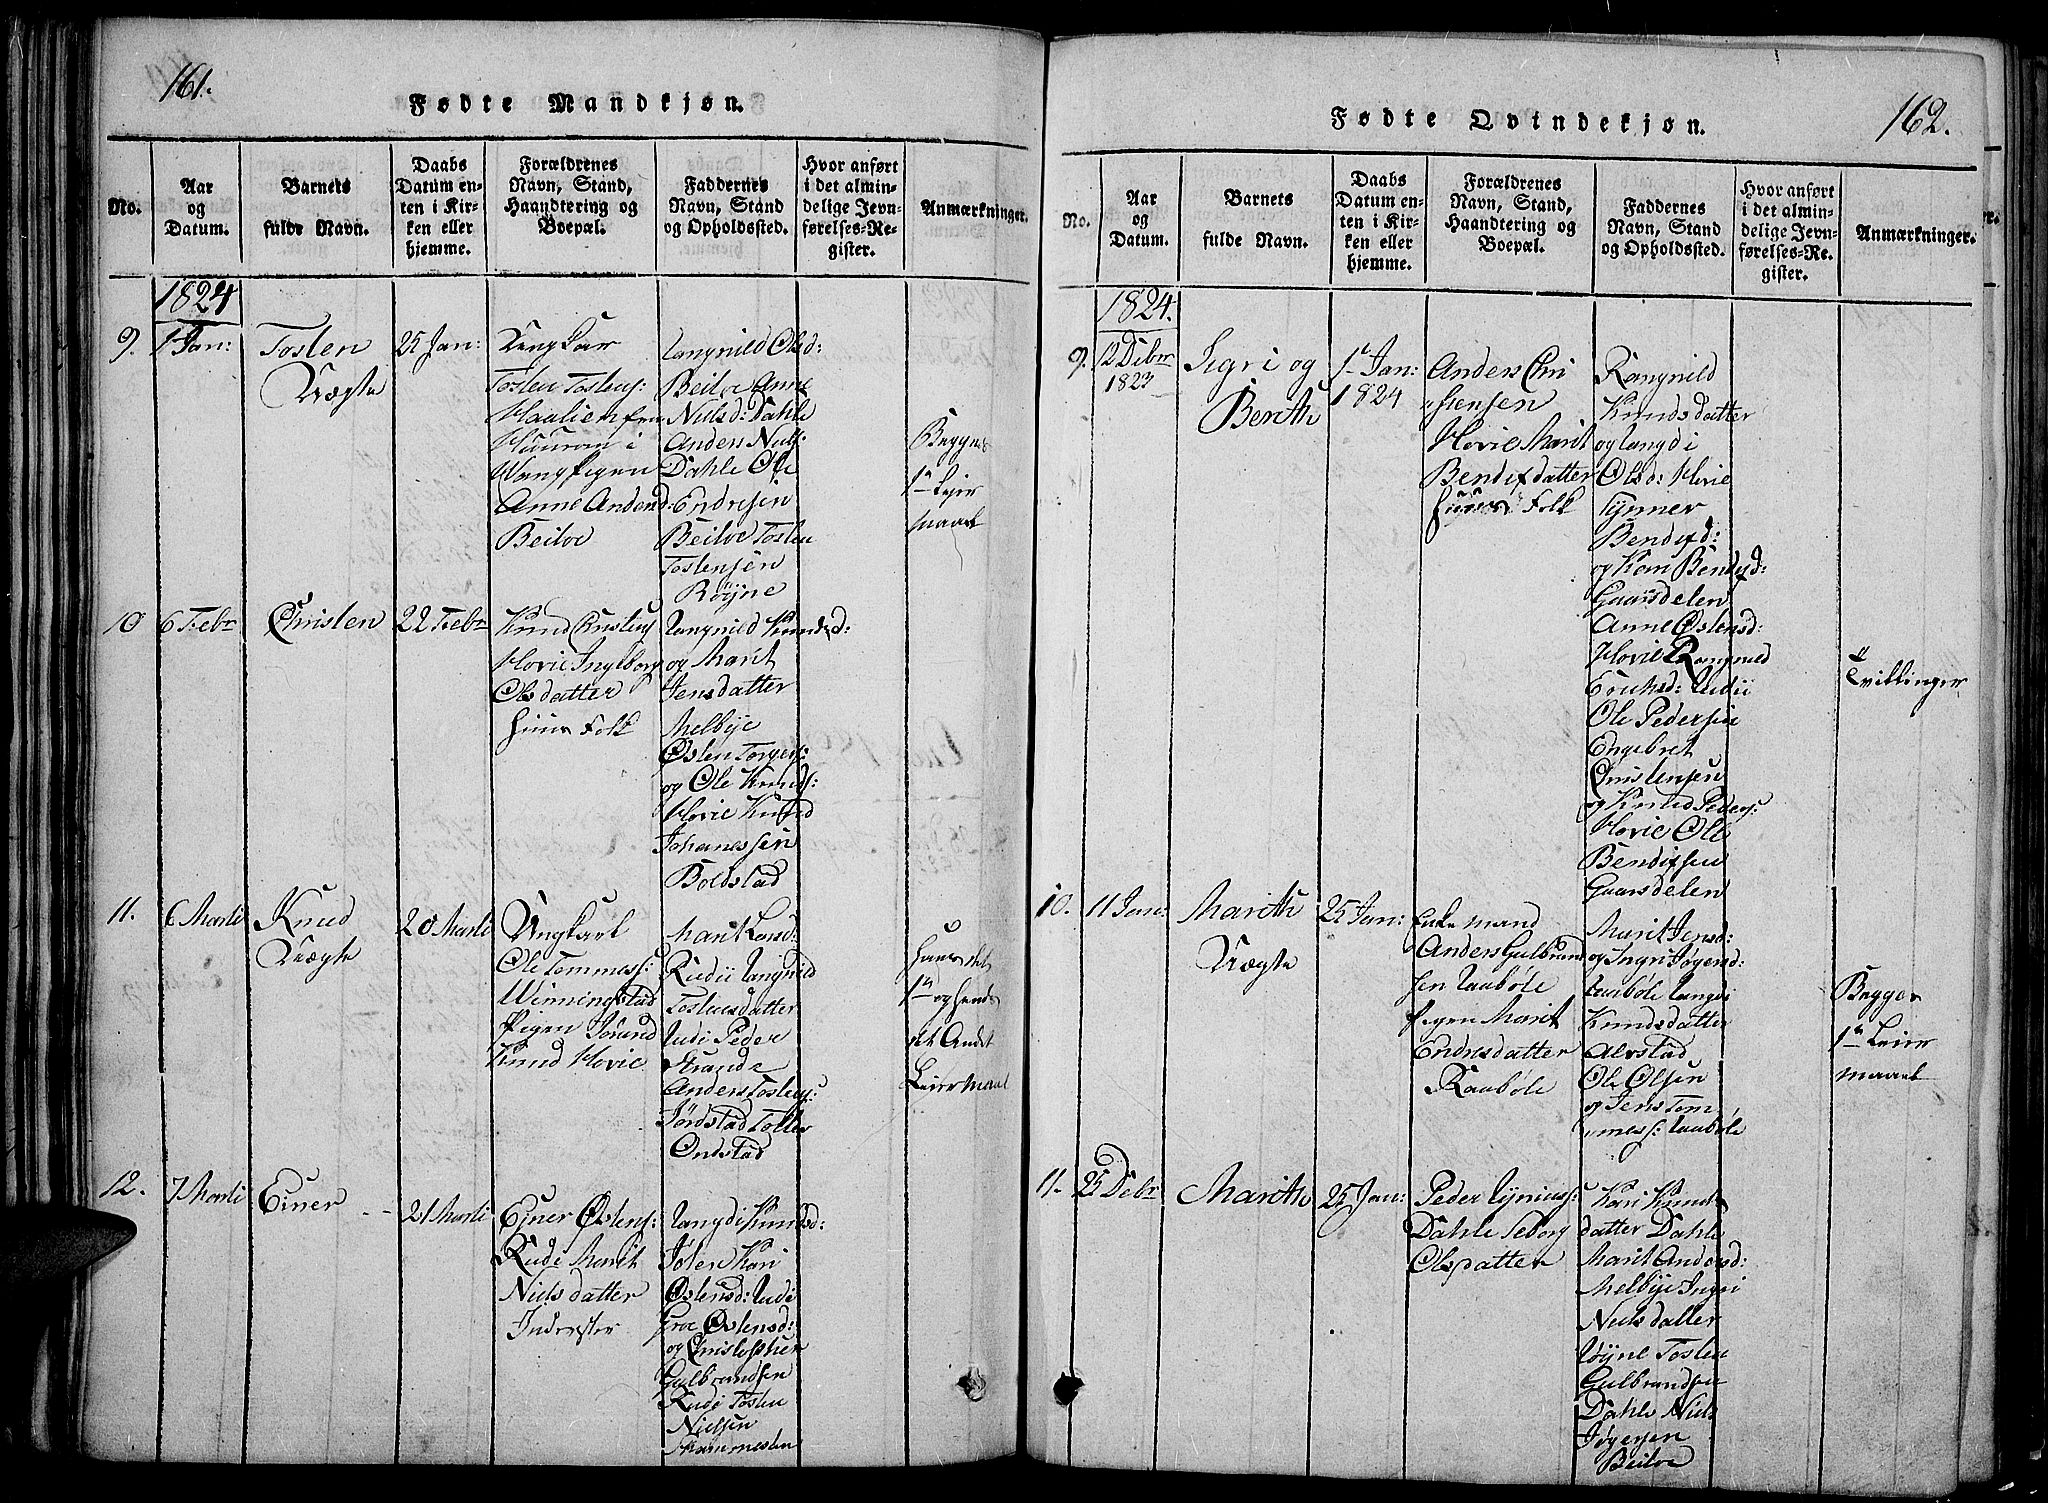 161.
Fødte Mandkjøn.
No.
Aar
og
Datum.
Barnets
fulde Navn.
Daabs
Datum en-
ten i Kir-
ken eller
hjemme.
Forældrenes
Navn, Stand,
Haandtering og
Boepæl.
Faddernes
Navn, Stand
og Opholdssted.
Hvor anført
i det almin-
delige Jevn-
førelses-Re-
gister.
Anmærkninger.
1824
9.
1 Jan:
Tosten
Uægte
25 Jan:
Ungkar
Tosten Tostens:
Haalien fra
i
Wang Pigen
Anne Andersd:
Beitoe
Rangnild Olsd:
Beitoe Anne
Nielsd: Dahle
Anders Niels:
Dahle Ole
Endresen
Beitoe Tosten
Tostensen
Røyne
Begges
1te Leier
maal
10
6 Febr
Christen
22 Febr
Knud Cristens
Hovie Ingeborg
Olsdatter
Huus Folk
Rangnild Knudsd:
og Marit
Jensdatter
Melbye
Østen Torgers:
og Ole Knuds:
Hovie Knud
Johanessen
Boldstad
11.
6 Marti
Knud
Uægte
20 Marti
Ungkarl
Ole Tommess:
Winningstad
Pigen Jørund
Knud Hovie
Marit Larsd:
Rudii Rangnild
Tostensdatter
Rudi Peder
Strande
Anders Tostens:
Jørdstad Tolle
Onstad
1te og hendes
Andet
Leiermaal
12.
7 Marti
Einer
21 Marti
Ejner Østens:
Rudi Marit
Nielsdatter
Inderster
Rangdi Knudsd:
Jølen Kari
Østensd: Rudi
Groe Østensd:
og Christopher
Gulbrandsen
Rudi Tosten
Nielsen
162.
Fødte Qvindekjøn.
No.
Aar
og
Datum.
Barnets
fulde Navn.
Daabs
Datum en-
ten i Kir-
ken eller
hjemme.
Forældrenes
Navn, Stand,
Haandtering og
Boepæl.
Faddernes
Navn, Stand
og Opholdssted.
Hvor anført
i det almin-
delige Jevn-
førelses-Re-
gister.
Anmærkninger.
1824.
9.
12 Debr
1823
Sigri og
Berith
1te Jan:
1824
Anders Chri
stensen
Hovie Marit
Bendixdatter
Huus Folk
Rangnild
Knudsdatter
og Rangdi
Olsd: Hovie
Bendixd:
og Kari Bendixd:
Gaarsdelen
Anne Østensd:
Hovie Rangnild
Ericksd: Rudii
Ole Pedersen
Engebret
Christensen
og Knud Peders:
Hovie Ole
Bendixsen
Gaarsdelen
Tvillinger
10.
11 Jan:
Marith
Uægte
25 Jan:
Enke mand
Anders Gulbrand
sen Raabøle
Pigen Marit
Endresdatter
Raabøle
Marit Jensd:
og Ingri Jøgensd:
Raabøle Rangdi
Knudsdatter
Alvstad
Ole Olsen
og Jens Tom
mess: Raabøle
Begges
1te Leier
maal
11.
25 Debr
Marith
25 Jan:
Peder
Dahle Seborg
Olsdatter
Kari Knuds
datter Dahle
Marit Andersd:
Melbye Ingri
Nielsdatter
Røyne Tosten
Gulbrandsen
Dahle Niels
Jøgensen
Beitoe